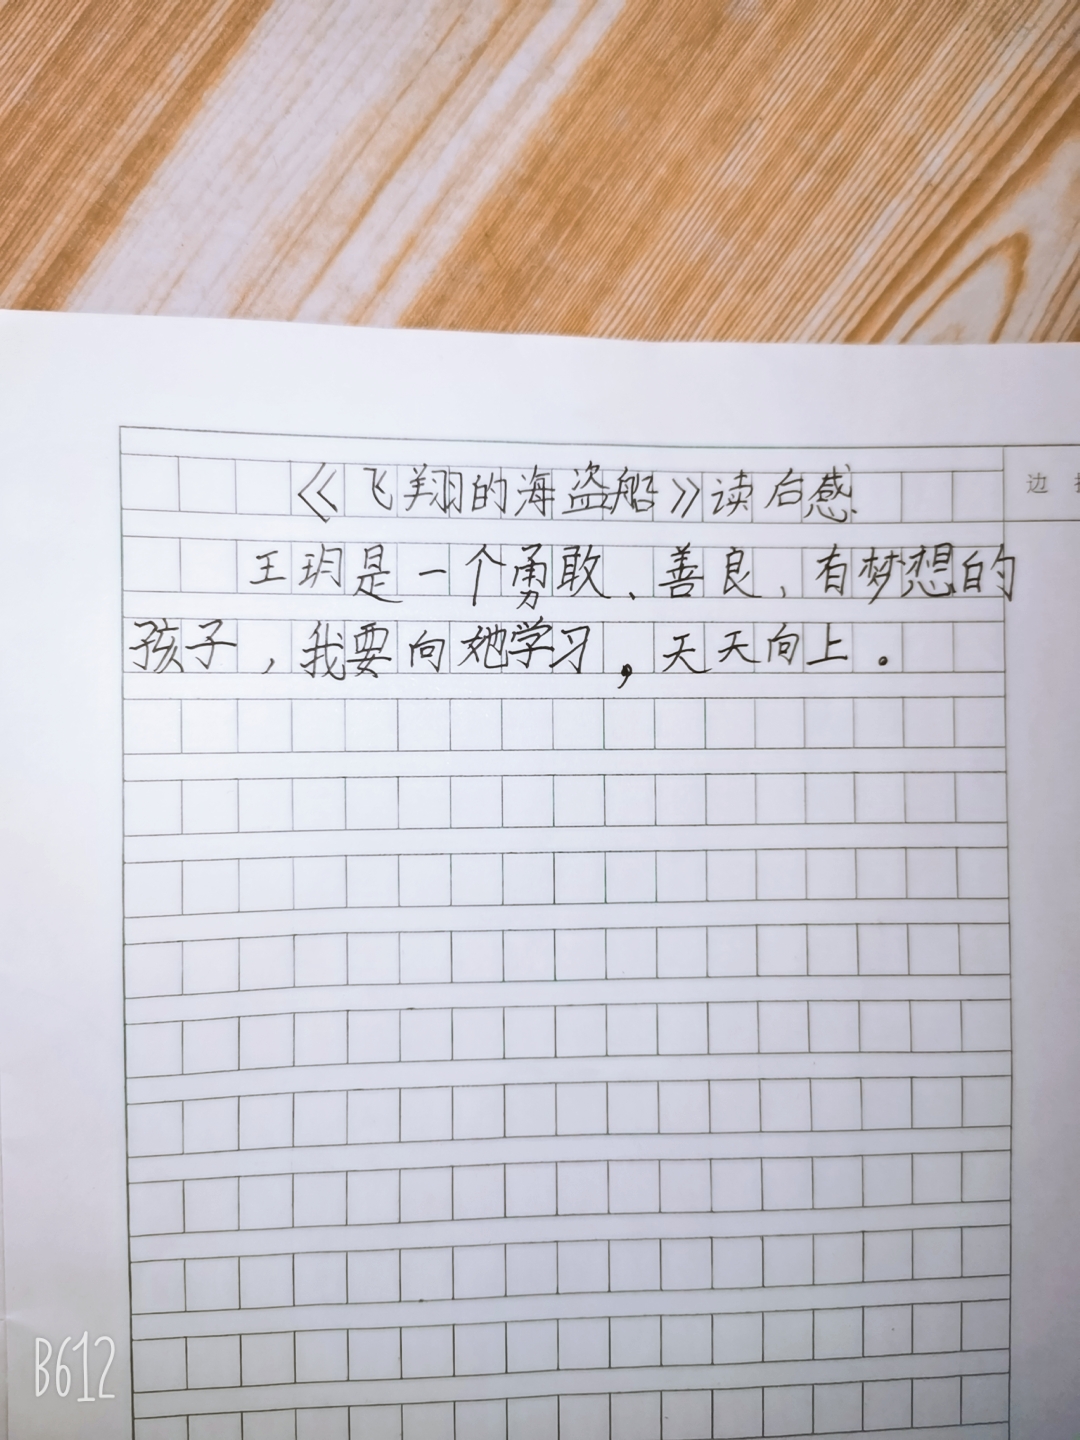 《飞翔的海盗船》读后感
王玥是一个勇敢、善良、有梦想的
孩子，我要向她学习，天天向上。
边
B612